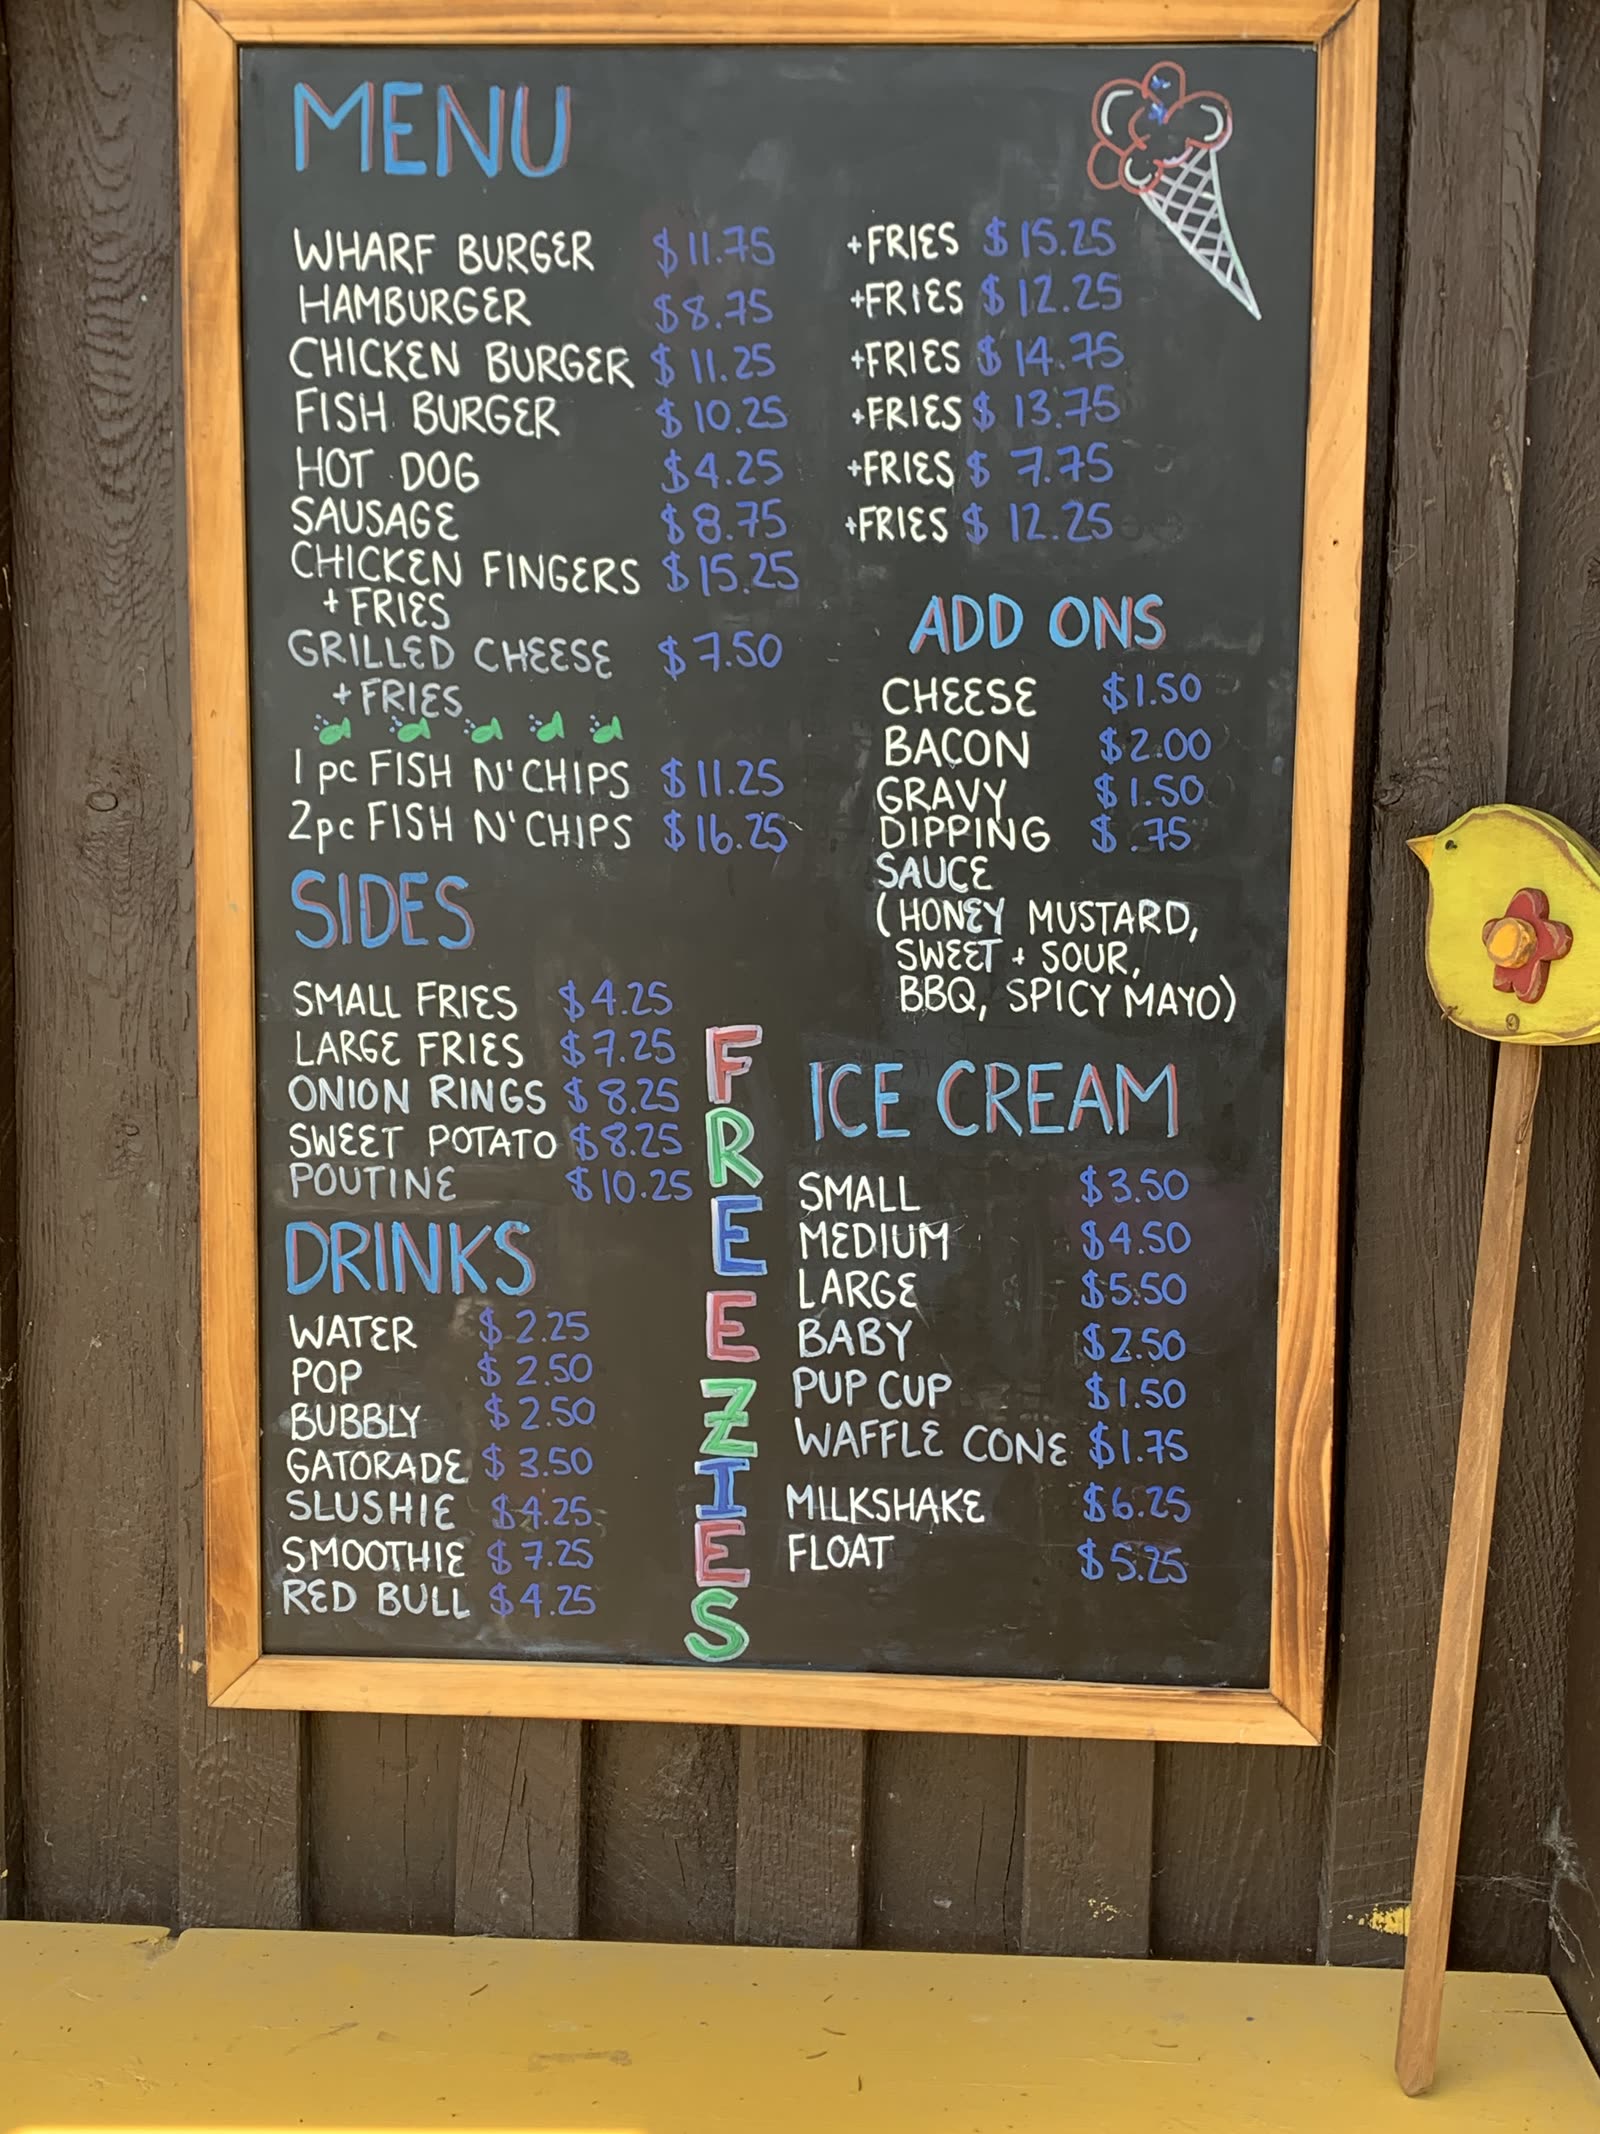 MENU
WHARF BURGER $11.75 +FRIES $15.25
HAMBURGER $8.75 +FRIES $12.25
CHICKEN BURGER $11.25 +FRIES $14.75
FISH BURGER $10.25 +FRIES $13.75
HOT DOG $4.25 +FRIES $7.75
SAUSAGE $8.75 +FRIES $12.25
CHICKEN FINGERS $15.25
+ FRIES
GRILLED CHEESE $7.50
+ FRIES
1 pc FISH N' CHIPS $11.25
2pc FISH N' CHIPS $16.25
ADD ONS
CHEESE $1.50
BACON $2.00
GRAVY $1.50
DIPPING $.75
SAUCE
(HONEY MUSTARD,
SWEET + SOUR,
BBQ, SPICY MAYO)
SIDES
SMALL FRIES $4.25
LARGE FRIES $7.25
ONION RINGS $8.25
SWEET POTATO $8.25
POUTINE $10.25
DRINKS
WATER $2.25
POP $2.50
BUBBLY $2.50
GATORADE $3.50
SLUSHIE $4.25
SMOOTHIE $7.25
RED BULL $4.25
FREEZIES
ICE CREAM
SMALL $3.50
MEDIUM $4.50
LARGE $5.50
BABY $2.50
PUP CUP $1.50
WAFFLE CONE $1.75
MILKSHAKE $6.25
FLOAT $5.25